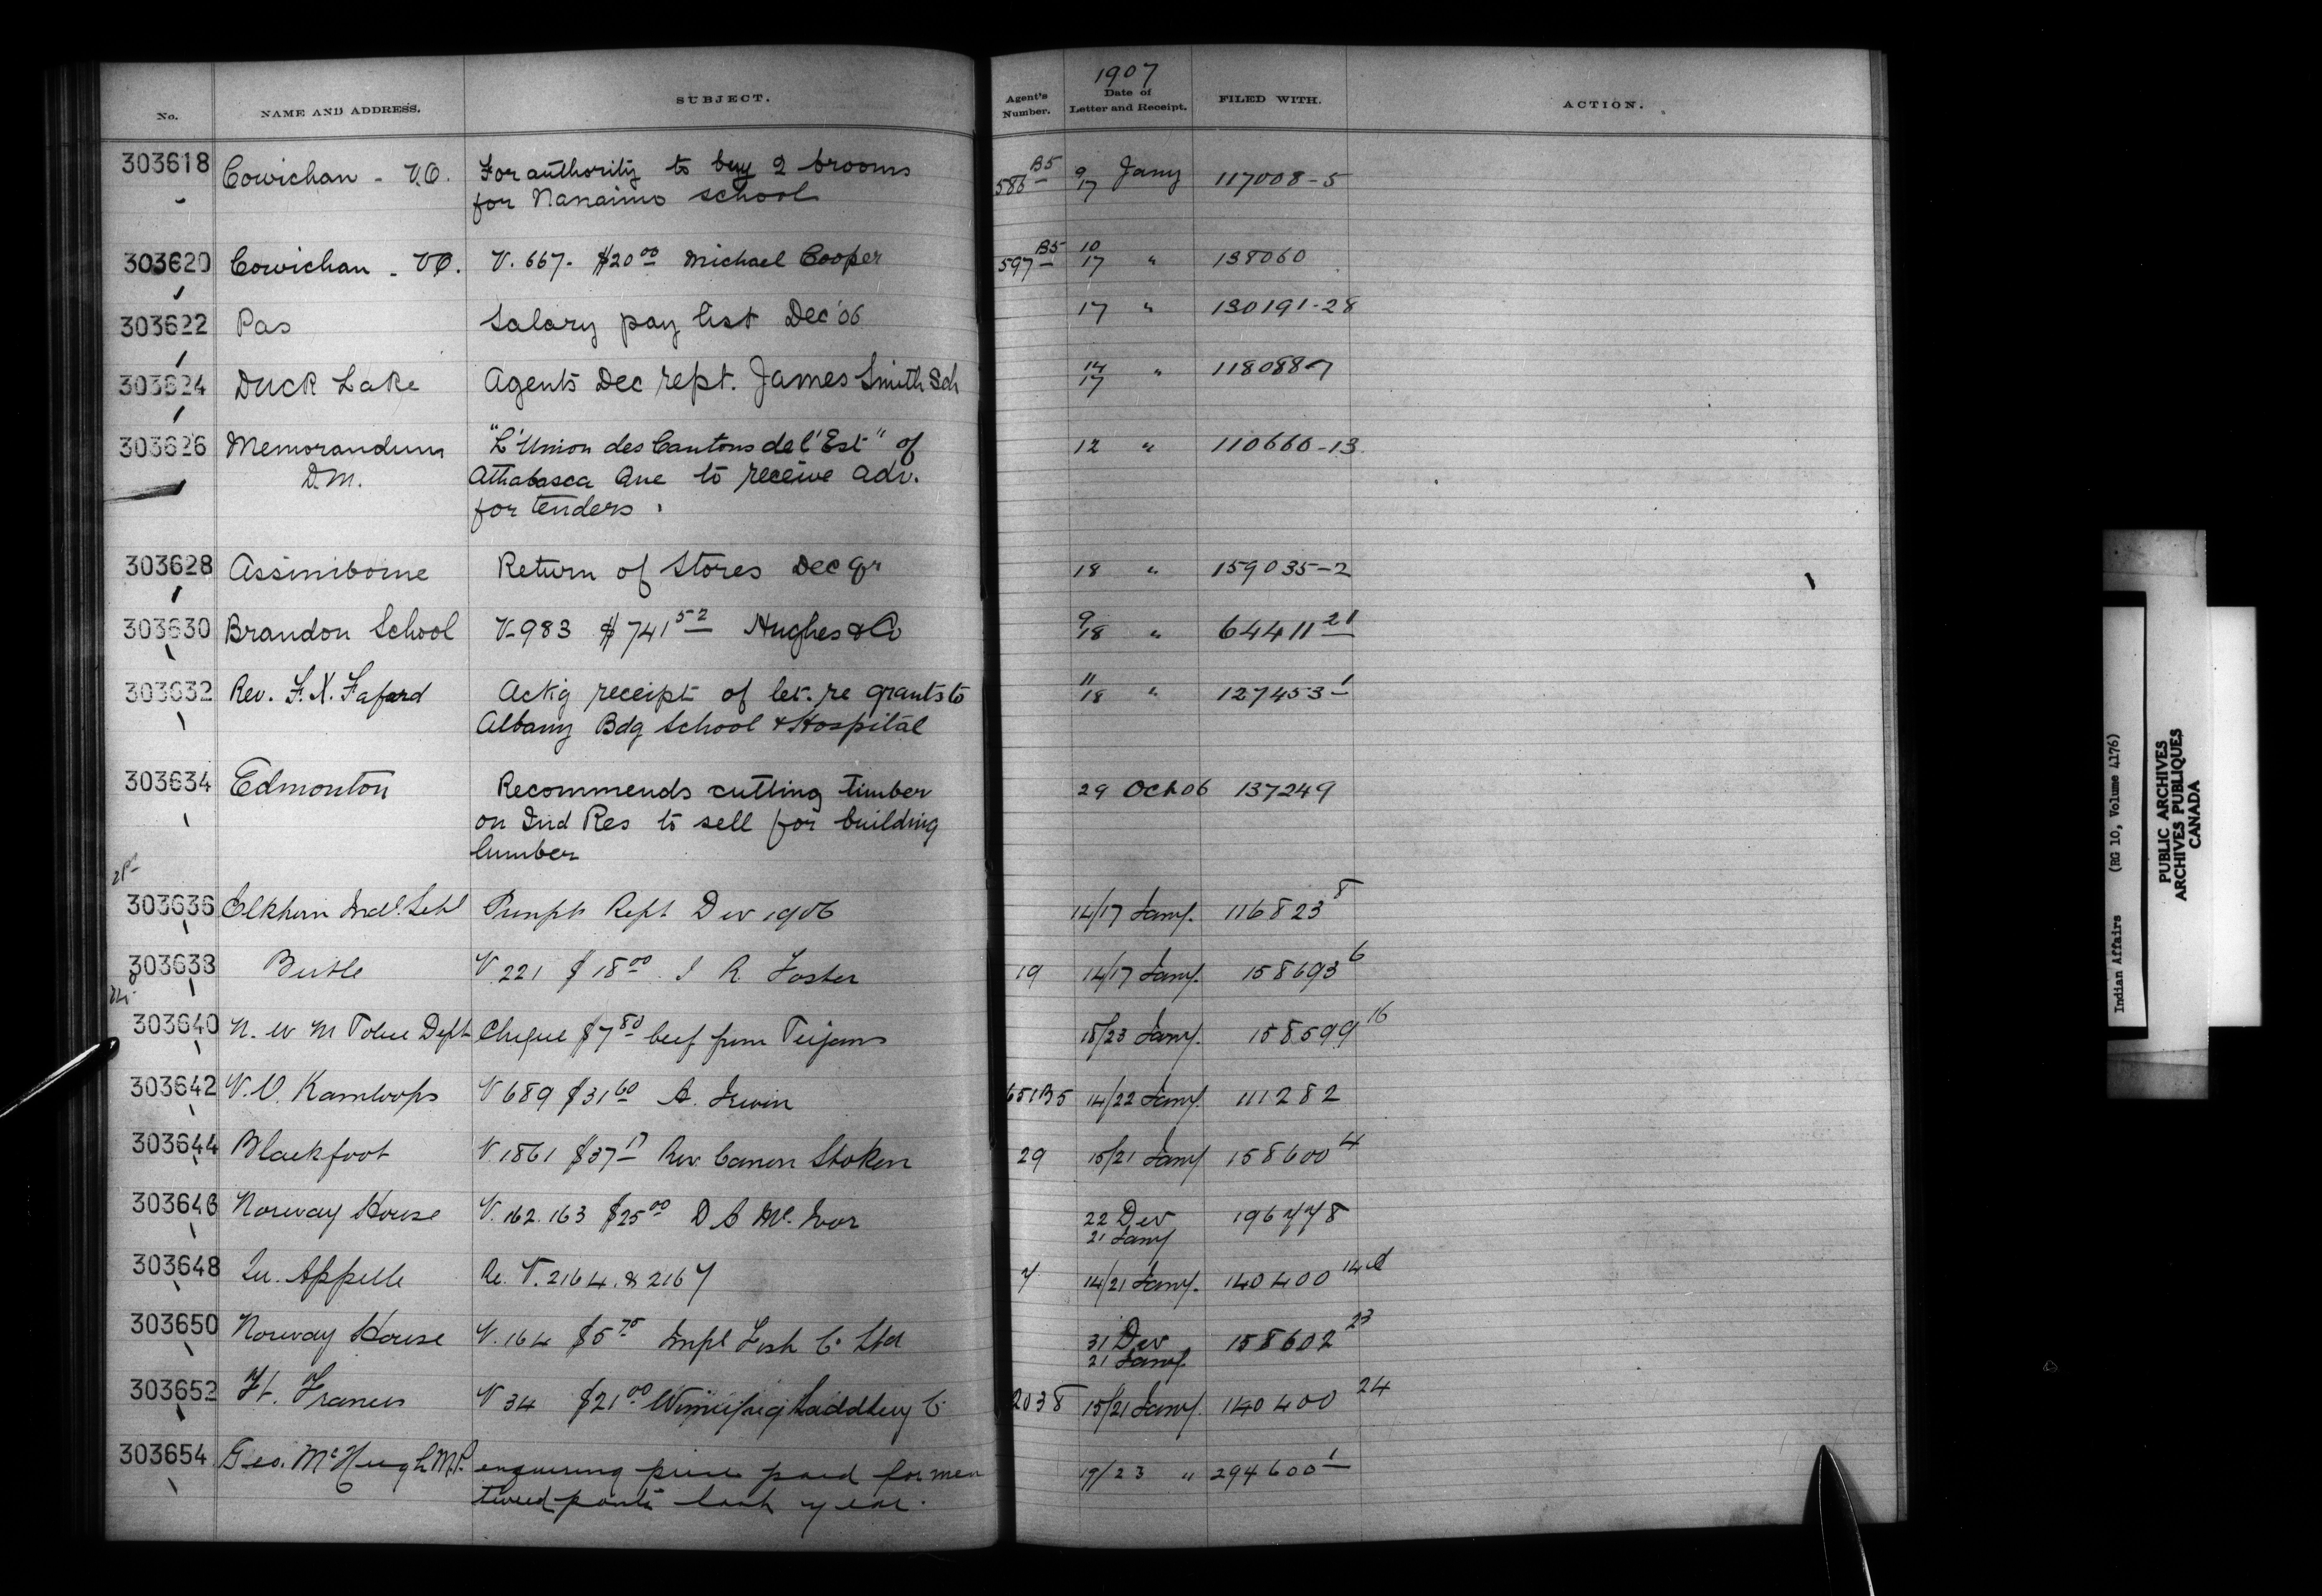 No. NAME AND ADDRESS. SUBJECT. Agent's Number. 1907 Date of Letter and Receipt. FILED WITH. ACTION.
303618 Cowichan - V.O. For authority to buy 2 brooms 586 B5 9/17 Jany 117008-5
for Nanaimo school
303620 Cowichan - VO. V. 667. $20 00 Michael Cooper 597 B5 10/17 " 138060
303622 Pas Salary pay list Dec '06 17 " 130191-28
303624 Duck Lake Agents Dec rept. James Smith Sch 14/17 " 118088-7
303626 Memorandum "L'Union des Cantons de l'Est" of 12 " 110666-13
D.M. Athabasca Que to receive adv.
for tenders.
303628 Assiniboine Return of Stores Dec Qr 18 " 159035-2
303630 Brandon School V-983 $741 52 Hughes & Co 9/18 " 64411 21
303632 Rev. F.X. Fafard Ack'g receipt of let. re grants to 11/18 " 127453-1
Albany Bdg School & Hospital
303634 Edmonton Recommends cutting timber 29 Oct 06 137249
on Ind Res to sell for building
lumber
303636 Elkhorn Indl. Schl Rept Dec 1906 14/17 Jany. 116823 8
303638 Birtle V 221 $18 00 J R Foster 19 14/17 Jany. 158693 6
303640 N. W M Police Dept Cheque $7 80 beef from Peigans 18/23 Jany. 158599 16
303642 V.O. Kamloops V 689 $31 60 A. Irwin 651B5 14/22 Jany. 111282
303644 Blackfoot V. 1861 $37 17 Rev Canon Stoken 29 15/21 Jany 158600 4
303646 Norway House V. 162. 163 $25 00 D A Mc. Ivor 22 Dec 196778
21 Jany
303648 Qu. Appelle Re. V. 2164. & 2167 7 14/21 Jany. 140400 14
303650 Norway House V. 164 $5 75 Impl Fish Co Ltd 31 Dec 158602 23
21 Jany
303652 Ft. Frances V 34 $21 00 Winnipeg Saddlery Co 2038 15/21 Jany. 140400 24
303654 Geo. McHugh M.P. enquiring price paid for men 19/23 " 294600 1
tweed pants last year.
Indian Affairs (RG 10, Volume 4176)
PUBLIC ARCHIVES
ARCHIVES PUBLIQUES
CANADA